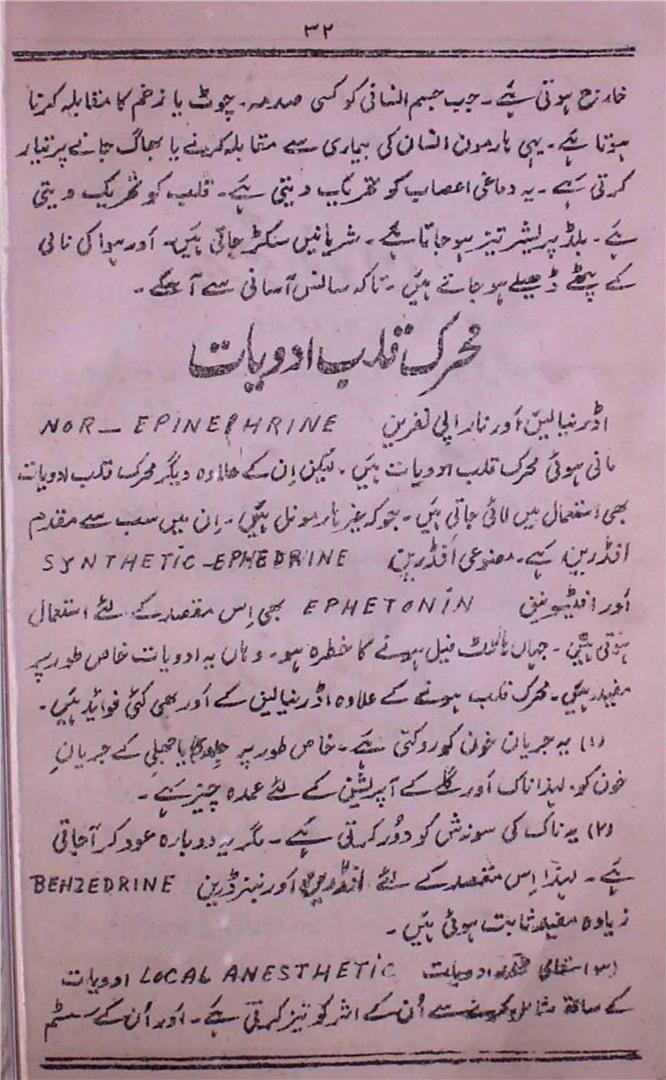 ۳۲
خارج ہوتی ہے۔ جب جسم انسانی کو کسی صدمہ۔ چوٹ یا زخم کا مقابلہ کرنا
ہوتا ہے۔ یہی ہارمون انسان کی بیماری سے مقابلہ کرنے یا بھاگ جانے پر تیار
کرتی ہے۔ یہ دماغی اعصاب کو تحریک دیتی ہے۔ قلب کو تحریک دیتی
ہے۔ بلڈ پریشر تیز ہو جاتا ہے۔ شریانیں سکڑ جاتی ہیں۔ اور ہوا کی نالی
کے پٹھے ڈھیلے ہو جاتے ہیں۔ تاکہ سانس آسانی سے آ سکے۔
محرک قلب ادویات
اڈرنیالین اور نار اپی نفرین NOR_ EPINEPHRINE
مانی ہوئی محرک قلب ادویات ہیں۔ لیکن اِن کے علاوہ دیگر محرک قلب ادویات
بھی استعمال میں لائی جاتی ہیں۔ جو کہ غیر ہارمونل ہیں۔ اِن میں سب سے مقدم
افڈرین ہے۔ مصنوعی اَفڈرین SYNTHETIC_EPHEDRINE
اور افٹیونین EPHETONIN بھی اِس مقصد کے لئے استعمال
ہوتی ہیں۔ جہاں ہارٹ فیل ہونے کا خطرہ ہو۔ وہاں یہ ادویات خاص طور پر
مفید ہیں۔ محرک قلب ہونے کے علاوہ اڈرنیالین کے اَور بھی کئی فوائد ہیں۔
(۱) یہ جریان خون کو روکتی ہے۔ خاص طور پر جلدی یا جھلی کے جریانِ
خون کو۔ لہذا ناک اَور گلے کے آپریشن کے لئے عمدہ چیز ہے۔
(۲) یہ ناک کی سوزش کو دُور کرتی ہے۔ مگر یہ دوبارہ عود کر آجاتی
ہے۔ لہذا اِس مقصد کے لئے افڈرین اور بنزڈرین BENZEDRINE
زیادہ مفید ثابت ہوئی ہیں۔
(۳) مقامی ادویات LOCAL ANESTHETIC ادویات
کے ساتھ شامل کرنے سے اُن کے اثر کو تیز کرتی ہے۔ اور اُن کے سسٹم